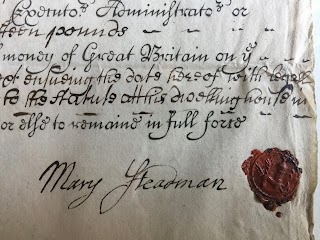 Executors Administrators or
teen pounds
money of Great Britain on ye
next ensueing the date hereof with legall
to the statute att his dwelling house in
or else to remaine in full force
Mary Steadman